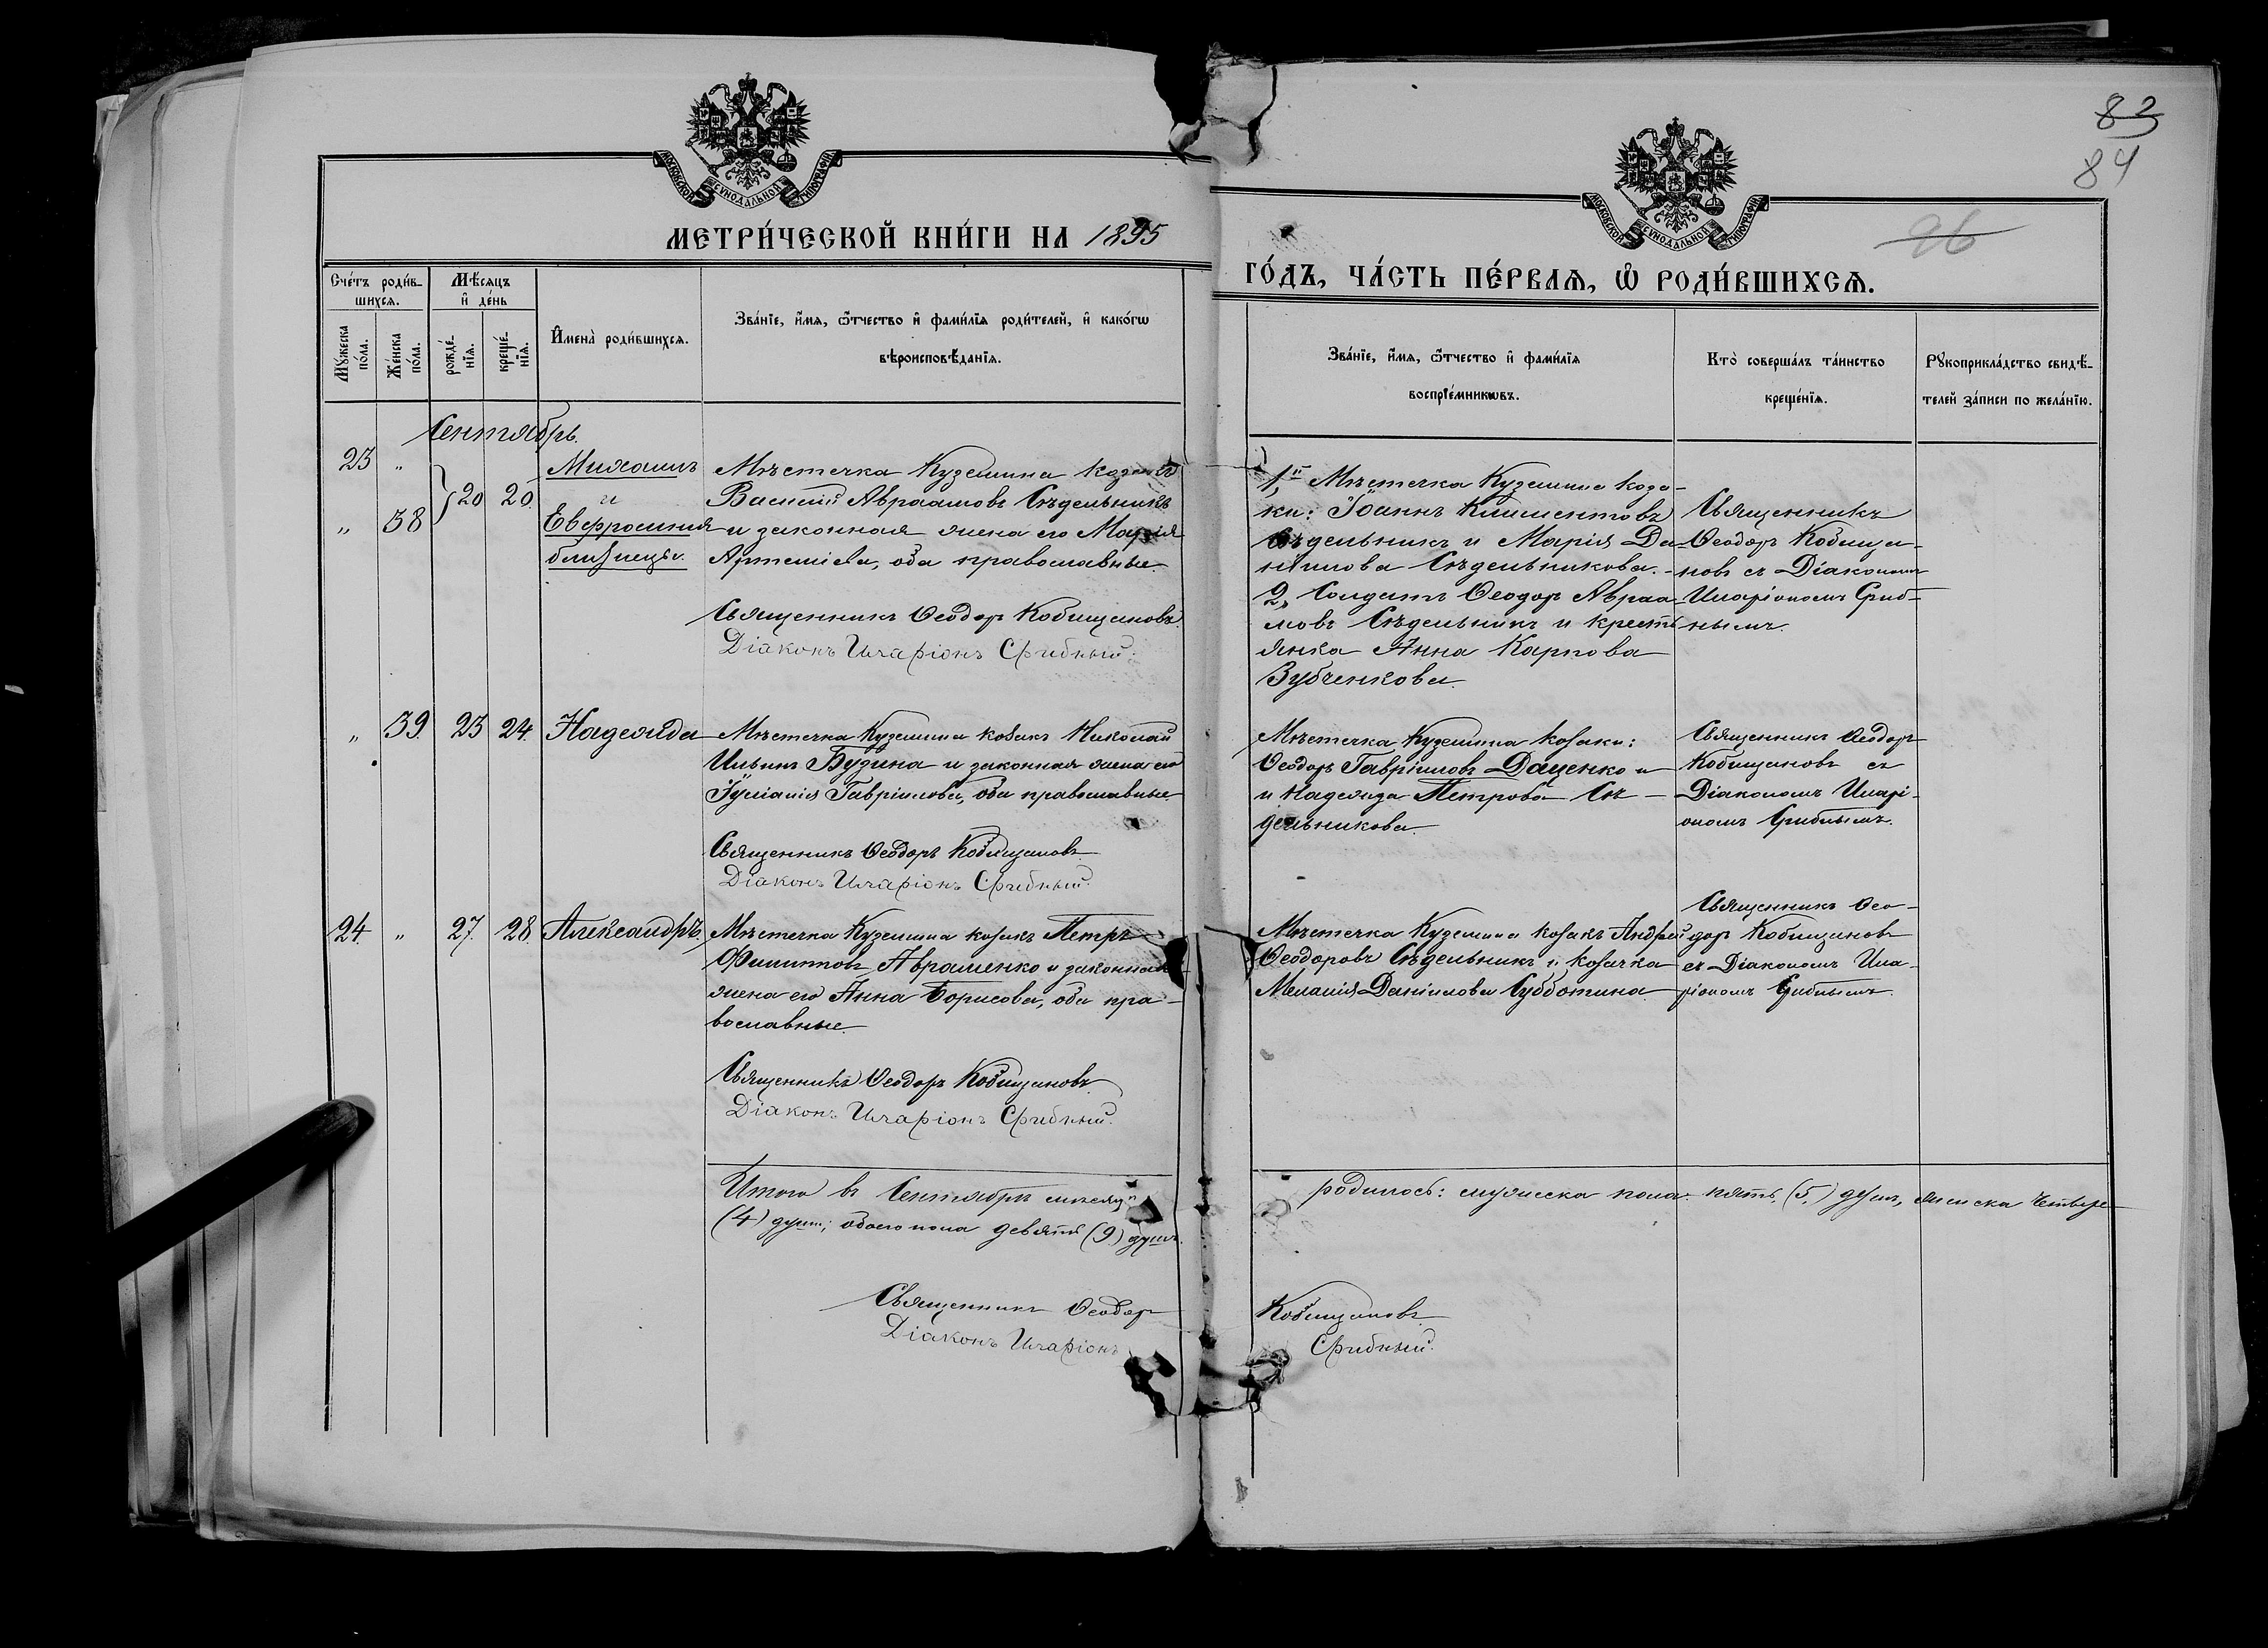 83
84
96
МОСКОВСКОЙ СѴНОДАЛЬНОЙ ТИПОГРАФІИ
МОСКОВСКОЙ СѴНОДАЛЬНОЙ ТИПОГРАФІИ
МЕТРИ́ЧЕСКОЙ КНИ́ГИ НА 1895
ГО́ДЪ, ЧА́СТЬ ПЕ́РВАѦ, Ѡ҆ РОДИ́ВШИХСѦ.
Сче́тъ роди́в-
шихсѧ.
Мꙋ́жеска по́ла.
Же́нска по́ла.
Мѣ́сѧцъ
и҆ де́нь
рожде́-
нїѧ.
креще́-
нїѧ.
И҆мена̀ роди́вшихсѧ.
Зва́нїе, и҆́мѧ, ѻ҆́тчество и҆ фами́лїѧ роди́телей, и҆ како́гѡ
вѣроисповѣ́данїѧ.
Зва́нїе, и҆́мѧ, ѻ҆́тчество и҆ фами́лїѧ
воспрїе́мникѡвъ.
Кто̀ соверша́лъ та́инство
креще́нїѧ.
Рꙋкоприкла́дство свидѣ́-
телей за́писи по жела́нїю.
Сентябрь.
23 „ Михаилъ
и
„ 38 } 20 20. Евфросинія
близнецы.
Мѣстечка Куземина козакъ
Василій Авраамовъ Сѣдельникъ
и законная жена его Марія
Артеміева, оба православные.
Священникъ Ѳеодоръ Кобищановъ.
Діаконъ Иларіонъ Срибный.
1, Мѣстечка Куземина коза-
ки: Іоаннъ Климентовъ
Сѣдельникъ и Марія Да-
ніилова Сѣдельникова. -
2, Солдатъ Ѳеодоръ Авраа-
мовъ Сѣдельникъ и кресть
янка Анна Карпова
Зубченкова.
Священникъ
Ѳеодоръ Кобища-
новъ съ Діакономъ
Иларіономъ Сриб-
нымъ.
„ 39. 23 24. Надежда
Мѣстечка Куземина козакъ Николай
Ильинъ Будина и законная жена его
Іуліанія Гавріилова, оба православные.
Священникъ Ѳеодоръ Кобищановъ.
Діаконъ Иларіонъ Срибный.
Мѣстечка Куземина козаки:
Ѳеодоръ Гавріиловъ Даценко и
и Надежда Петрова Сѣ-
дельникова.
Священникъ Ѳеодоръ
Кобищановъ съ
Діакономъ Иларі-
ономъ Срибнымъ.
24. „ 27. 28. Александръ.
Мѣстечка Куземина козакъ Петръ
Филипповъ Авраменко и законная
жена его Анна Борисова, оба пра-
вославные.
Священникъ Ѳеодоръ Кобищановъ.
Діаконъ Иларіонъ Срибный.
Мѣстечка Куземина козакъ Андрей
Ѳеодоровъ Сѣдельникъ и козачка
Меланія Даніилова Субботина.
Священникъ Ѳео-
доръ Кобищановъ
съ Діакономъ Ила-
ріономъ Срибнымъ.
Итого въ Сентябрѣ мѣсяцѣ родилось: мужеска пола: пять, (5,) душъ, женска четыре
(4) души; обоего пола девять (9) душъ.
Священникъ Ѳеодоръ Кобищановъ.
Діаконъ Иларіонъ Срибный.